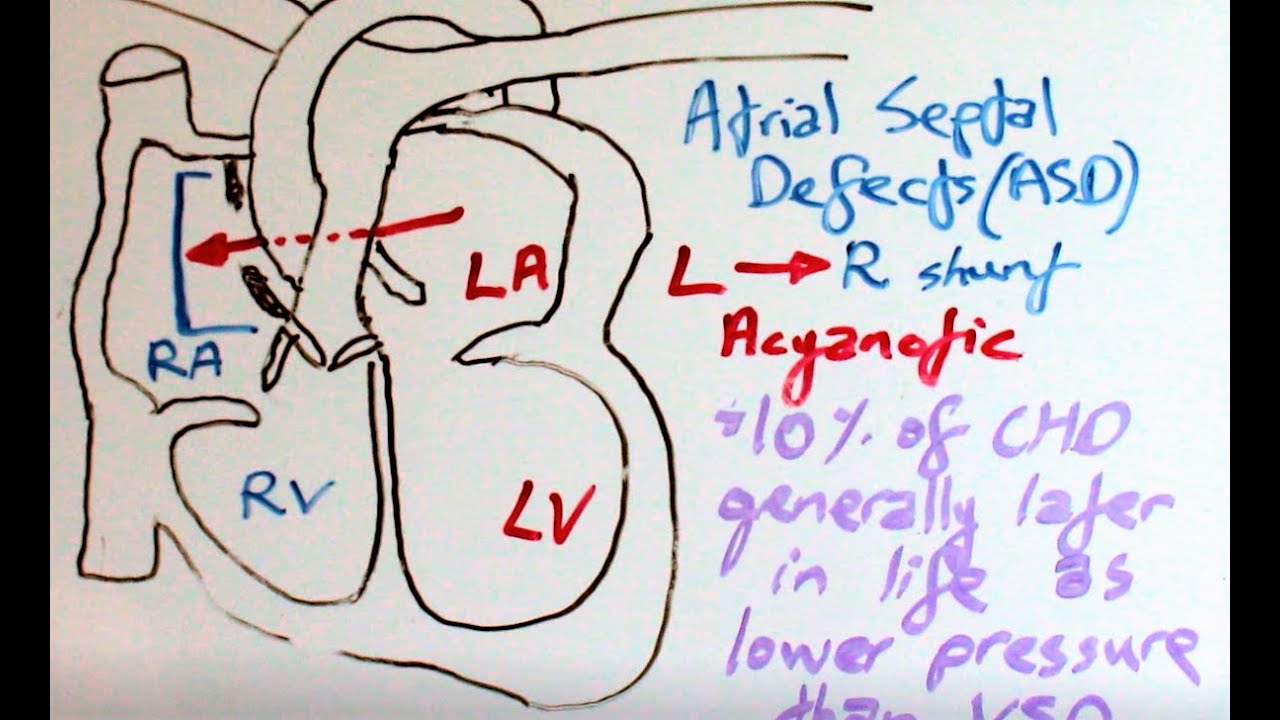 Atrial Septal
Defects (ASD)
L → R shunt
Acyanotic
~10% of CHD
generally later
in life as
lower pressure
than VSD
LA
RA
RV
LV